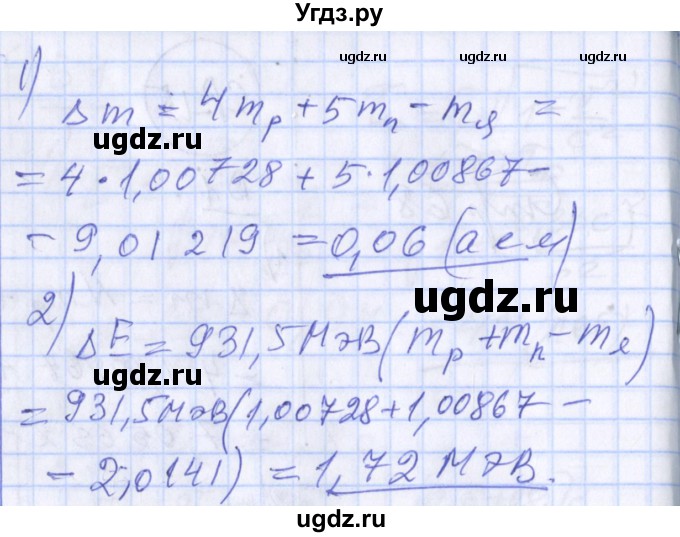 Угдз.ру
ugdz.ru ugdz.ru ugdz.ru
1)
Δm = 4mp + 5mn - mя =
ugdz.ru
= 4·1,00728 + 5·1,00867 -
- 9,01219 = 0,06 (а е м)
ugdz.ru
ugdz.ru
2)
ΔE = 931,5МэВ(mp + mn - mя)
ugdz.ru
ugdz.ru
= 931,5МэВ(1,00728 + 1,00867 -
- 2,0141) = 1,72 МэВ.
ugdz.ru
ugdz.ru
ugdz.ru